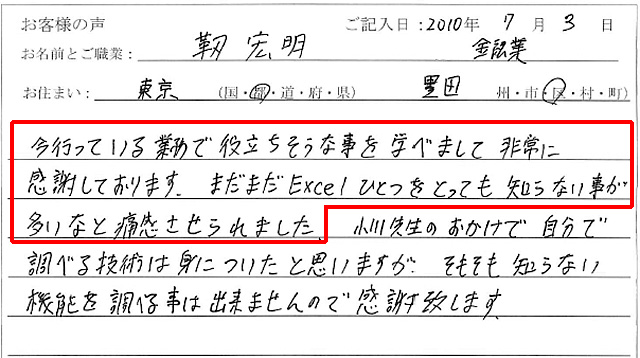 お客様の声 ご記入日：2010年 7月 3日
お名前とご職業： 靭 宏明 金融業
お住まい： 東京 （国・都・道・府・県） 豊田 州・市・区・村・町）
今行っている業務で役立ちそうな事を学べまして非常に
感謝しております。まだまだExcelひとつをとっても知らない事が
多いなと痛感させられました。小川先生のおかげで自分で
調べる技術は身についたと思いますが、そもそも知らない
機能を調べる事は出来ませんので感謝致します。